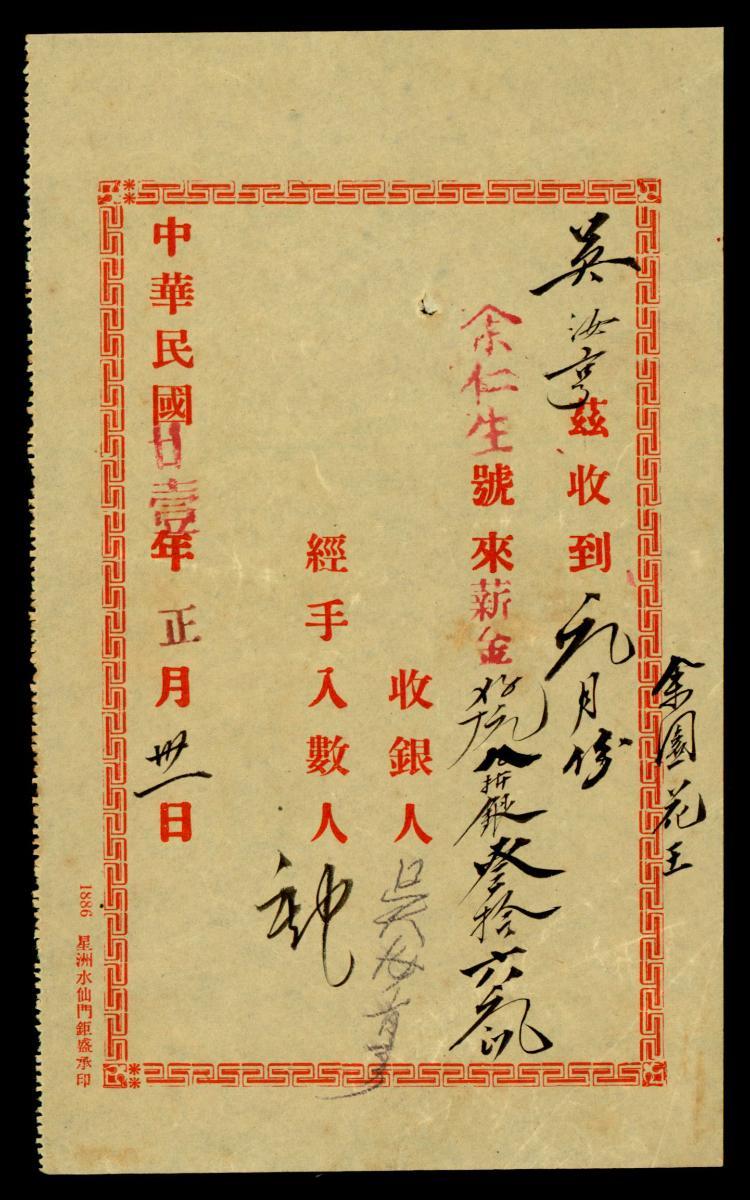 余園花王
吳汝亨茲收到元月份
余仁生號來薪金〤〥元八折銀叁拾六元
收銀人吳汝亨
經手入數人
中華民國廿壹年正月卅一日
1886 星洲水仙門鉅盛承印